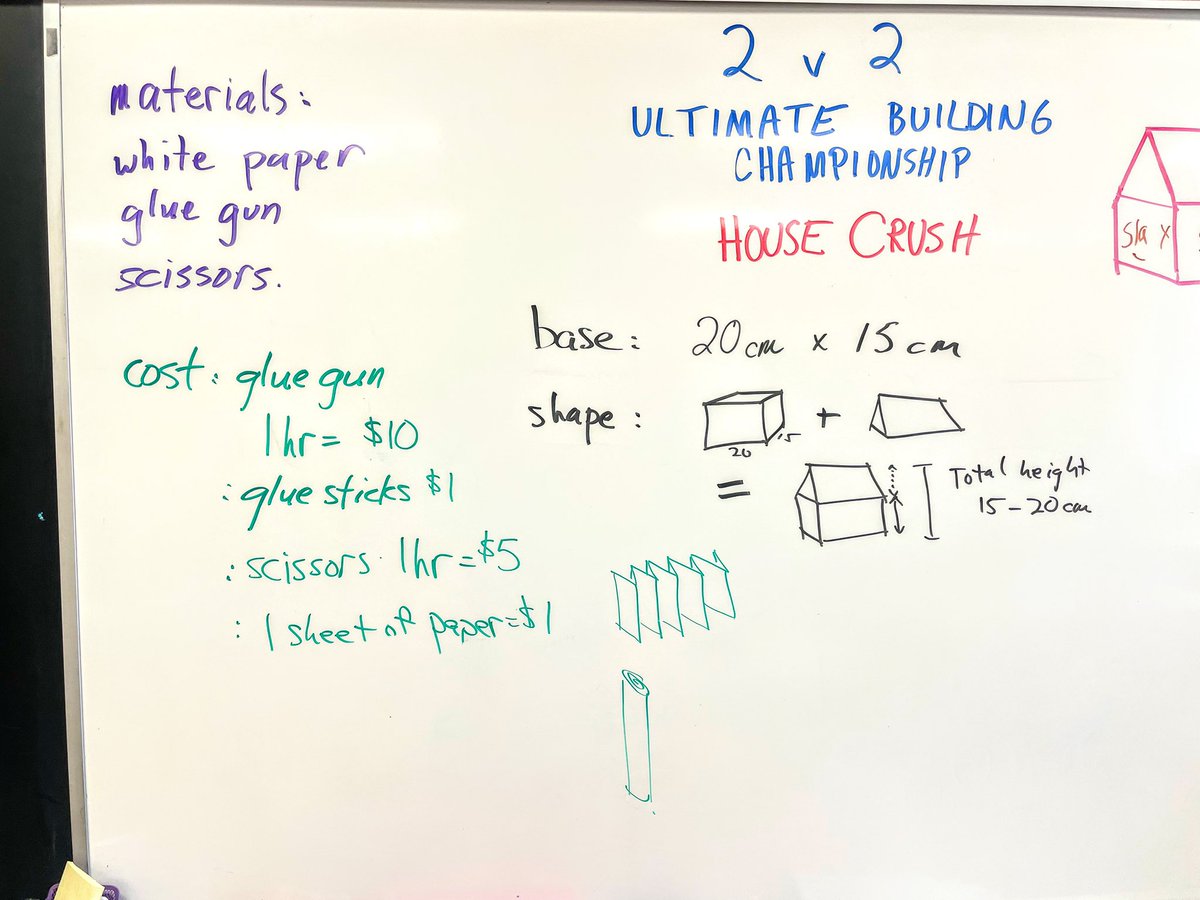 materials:
white paper
glue gun
scissors.
cost: glue gun
1 hr = $10
: glue sticks $1
: scissors. 1hr = $5
: 1 sheet of paper = $1
2 v 2
ULTIMATE BUILDING
CHAMPIONSHIP
HOUSE CRUSH
base: 20cm x 15cm
shape:
20
15
+
=
Total height
15-20cm